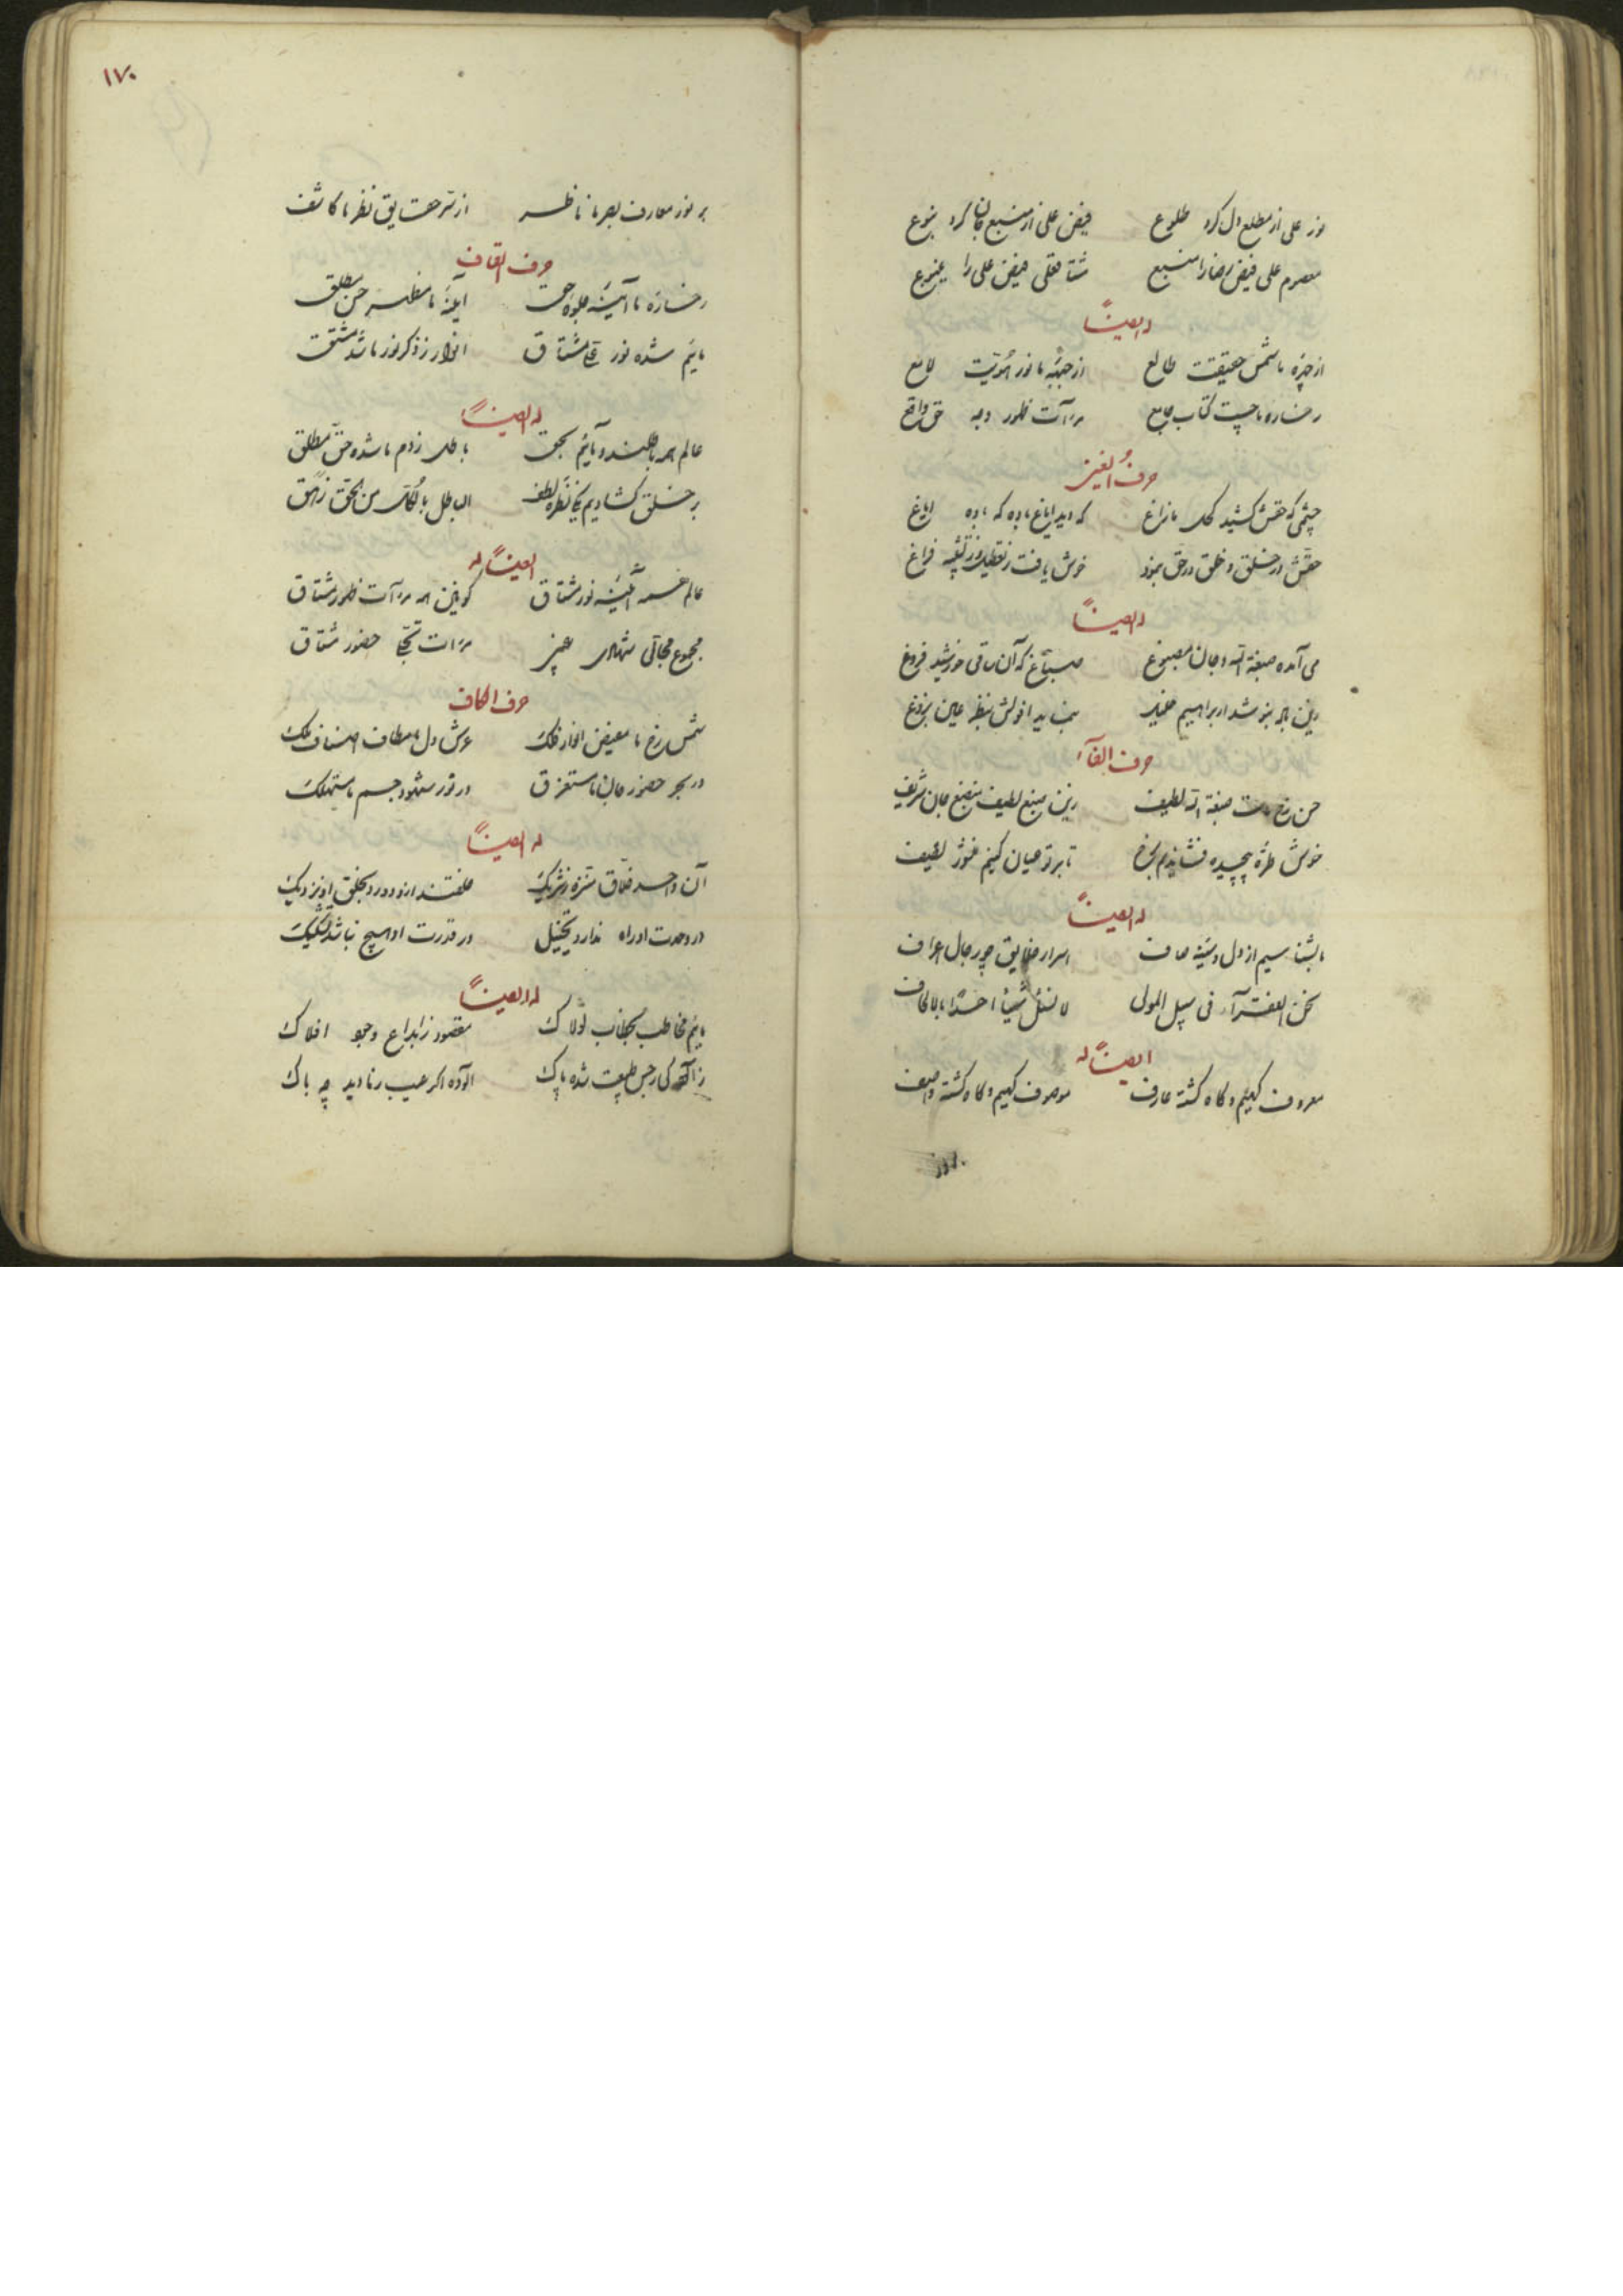 نور علی از مطلع دل کرد طلوع فیض علی از منبع جان کرد نبوع
معصوم علی فیض رضا را منبع مشتاقعلی فیض علی را ینبوع
له ایضاً
از چهره ما شمس حقیقت طالع از جبهه ما نور هویت لامع
رخساره ما چیست کتاب جامع مرآت ظهور وجه حق واقع
حرف الغین
چشمی که حقش کشید کحل مازاغ که دید ایاغ باده که باده ایاغ
حقش در خلق و خلق در حق بنمود خوش یافت ز تعطیل و ز تشبیه فراغ
له ایضاً
می آمده صبغة الله و جان مصبوغ صباغ که آن ساقی خورشید فروغ
حرف الفآء
حسن رخ صبغة الله لطیف جان شریف
خوش طره پیچیده فشاندیم برخ تا بر تو عیان کنیم لفیف
له ایضاً
بشناسیم از دل و سینه صاف اسرار خلایق چو رجال اعراف
نحن الفقرآء فی سبیل المولی لا نسئل شیئا احدا بالحاف
ایضاً له
معروف کهیم و گاه گشته عارف موصوف کهیم و گاه گشته واصف
بر نور
۱۷۰
بر نور معارف بصر ما ناظر از سر حقایق نظر ما کاشف
حرف القاف
رخساره ما آینه جلوه حق آینه ما مظهر حسن مطلق
مائیم شده نور علی مشتاق انوار ز ذکر نور ما شد مشتق
له ایضاً
عالم همه باطلند و مائیم بحق باطل ز دم ما شده حق مطلق
بر خلق گشادیم یکی نظره لطف الباطل بالکل من الحق زهق
ایضاً له
عالم همه آئینه نور مشتاق کونین همه مرآت ظهور مشتاق
مجموع مجالی شهادی غیب مرات تجلی حضور مشتاق
حرف الکاف
شمس رخ ما مفیض انوار فلک عرش دل ما مطاف اصناف ملک
در بحر حضور جان ما مستغرق در نور شهود جسم ما مستهلک
له ایضاً
آن واحد خلاق منزه ز شریک خلقند ازو دور و بخلق او نزدیک
در وحدت او راه ندارد تخییل در قدرت او هیچ نباشد تشکیک
له ایضاً
مائیم مخاطب بخطاب لولاک مقصود ز ابداع وجود افلاک
زالودگی رجس طبیعت شده پاک آلوده اگر عیب رنا دید چه باک